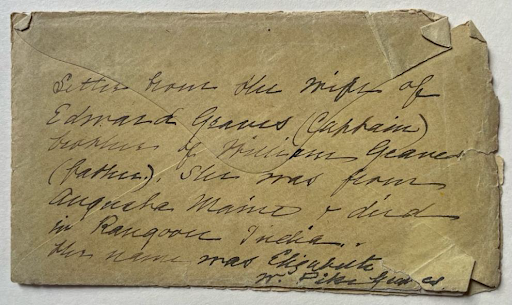 Letter from the wife of
Edward Graves (Captain)
brother of William Graves
(father). She was from
Augusta Maine & died
in Rangoon India.
Her name was Elizabeth
W. Pike Graves.